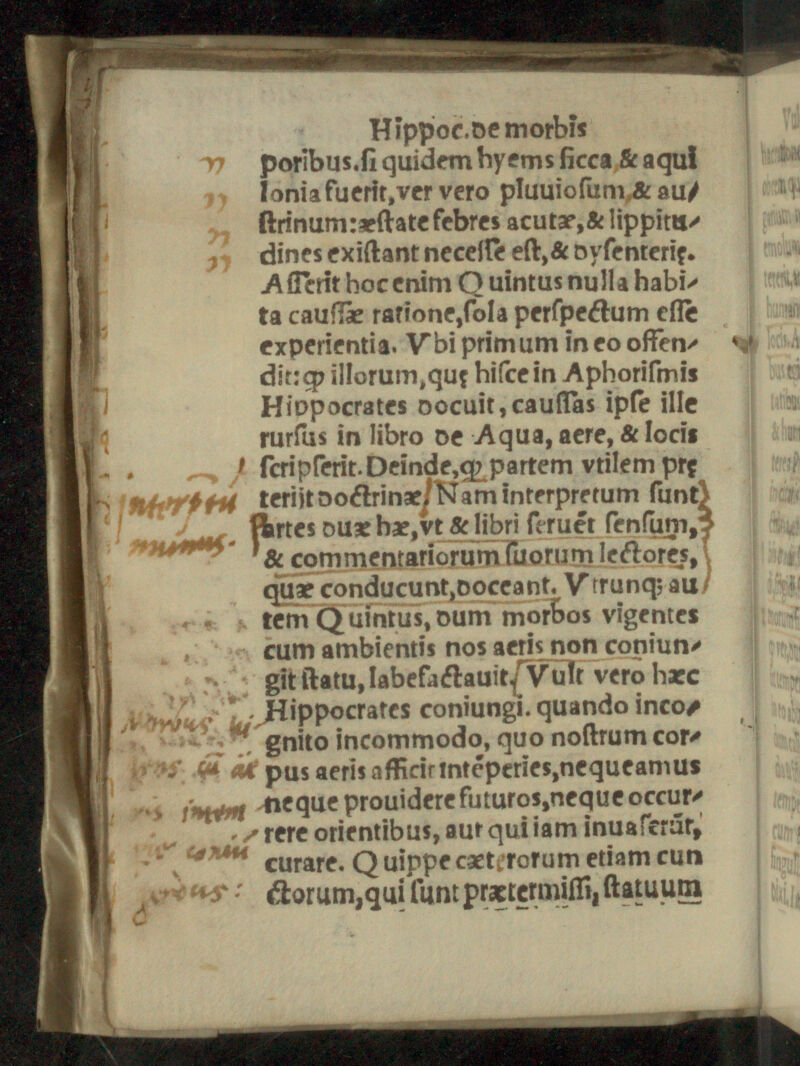 Hippoc.de morbis
poribus.ſi quidem hyems ſicca,& aqui
lonia fuerit,ver vero pluuioſum,& au/
ſtrinum:æſtate febres acutæ,& lippitu/
dines exiſtant neceſſe eſt,& dyſenterię.
Aſſerit hoc enim Quintus nulla habi/
ta cauſſæ ratione,ſola perſpectum eſſe
experientia. Vbi primum in eo offen/
dit:ꝙ illorum,quę hiſce in Aphoriſmis
Hippocrates docuit,cauſſas ipſe ille
rurſus in libro de Aqua, aere, & locis
ſcripſerit. Deinde,ꝙ partem vtilem prę
terijt doctrinæ/ Nam interpretum ſunt
partes duæ hæ,vt & libri ſeruēt ſenſum,
& commentariorum ſuorum lectores,
quæ conducunt,doceant. Vtrunq; au/
tem Quintus, dum morbos vigentes
cum ambientis nos aeris non coniun/
git ſtatu, labefactauit/ Vult vero hæc
Hippocrates coniungi. quando inco/
gnito incommodo, quo noſtrum cor/
pus aeris afficit intēperies,nequeamus
neque prouidere futuros,neque occur/
rere orientibus, aut qui iam inuaſerūt,
curare. Quippe cæterorum etiam cun
ctorum,qui ſunt prætermiſſi, ſtatuum